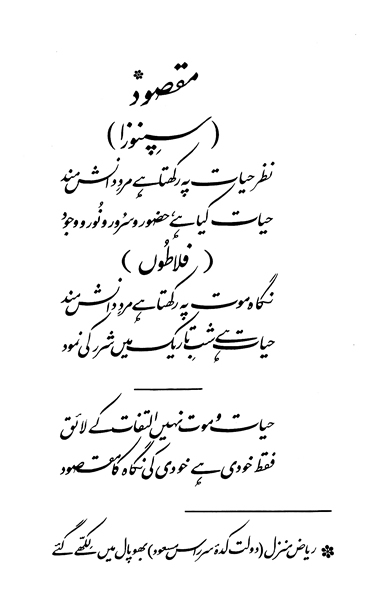 مقصود*
(سپنوزا)
نظر حیات پہ رکھتا ہے مردِ دانش مند
حیات کیا ہے حضور و سرور و نُور و وجود
(فلاطُوں)
نگاہ موت پہ رکھتا ہے مردِ دانش مند
حیات ہے شبِ تاریک میں شرر کی نمود
حیات و موت نہیں التفات کے لائق
فقط خودی ہے خودی کی نگاہ کا مقصود
* ریاض منزل (دولت کدۂ سر راس مسعود) بھوپال میں لکھے گئے